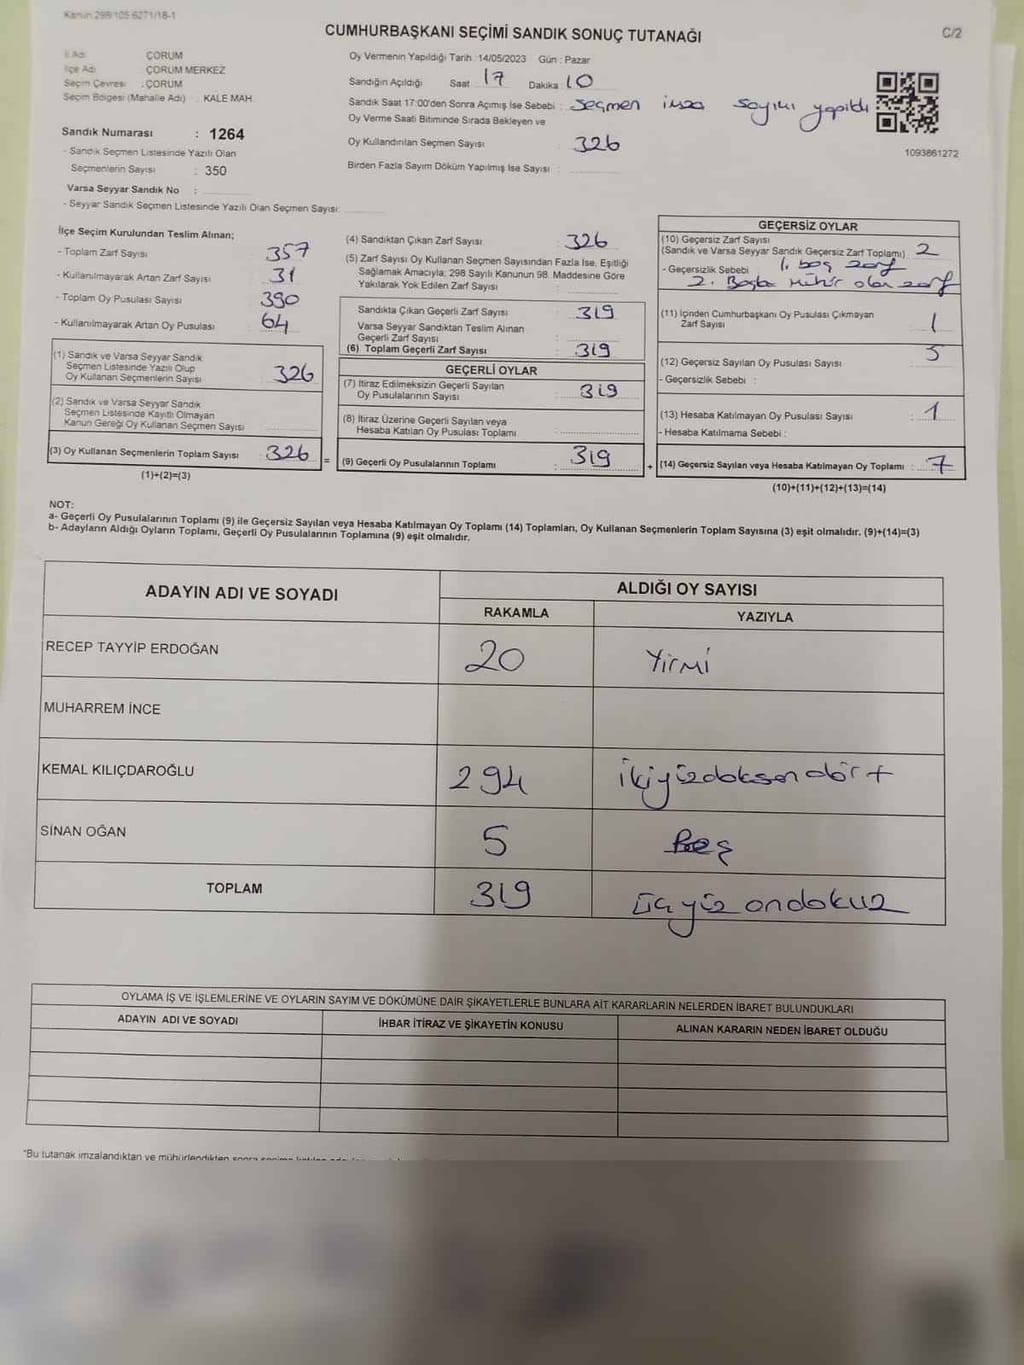 Kanun 298/105 6271/18-1
CUMHURBAŞKANI SEÇİMİ SANDIK SONUÇ TUTANAĞI
C/2
İl Adı : ÇORUM
İlçe Adı : ÇORUM MERKEZ
Seçim Çevresi : ÇORUM
Seçim Bölgesi (Mahalle Adı) : KALE MAH
Sandık Numarası : 1264
- Sandık Seçmen Listesinde Yazılı Olan
Seçmenlerin Sayısı : 350
Varsa Seyyar Sandık No :
- Seyyar Sandık Seçmen Listesinde Yazılı Olan Seçmen Sayısı:
Oy Vermenin Yapıldığı Tarih : 14/05/2023 Gün : Pazar
Sandığın Açıldığı Saat 17 Dakika 10
Sandık Saat 17:00'den Sonra Açımış İse Sebebi : Seçmen imza sayımı yapıldı
Oy Verme Saati Bitiminde Sırada Bekleyen ve
Oy Kullandırılan Seçmen Sayısı : 326
Birden Fazla Sayım Döküm Yapılmış İse Sayısı :
1093861272
İlçe Seçim Kurulundan Teslim Alınan;
- Toplam Zarf Sayısı : 357
- Kullanılmayarak Artan Zarf Sayısı : 31
- Toplam Oy Pusulası Sayısı : 390
- Kullanılmayarak Artan Oy Pusulası : 64
(1) Sandık ve Varsa Seyyar Sandık
Seçmen Listesinde Yazılı Olup
Oy Kullanan Seçmenlerin Sayısı : 326
(2) Sandık ve Varsa Seyyar Sandık
Seçmen Listesinde Kayıtlı Olmayan
Kanun Gereği Oy Kullanan Seçmen Sayısı :
(3) Oy Kullanan Seçmenlerin Toplam Sayısı : 326
(1)+(2)=(3)
(4) Sandıktan Çıkan Zarf Sayısı : 326
(5) Zarf Sayısı Oy Kullanan Seçmen Sayısından Fazla İse, Eşitliği
Sağlamak Amacıyla; 298 Sayılı Kanunun 98. Maddesine Göre
Yakılarak Yok Edilen Zarf Sayısı :
Sandıkta Çıkan Geçerli Zarf Sayısı : 319
Varsa Seyyar Sandıktan Teslim Alınan
Geçerli Zarf Sayısı :
(6) Toplam Geçerli Zarf Sayısı : 319
GEÇERLİ OYLAR
(7) İtiraz Edilmeksizin Geçerli Sayılan
Oy Pusulalarının Sayısı : 319
(8) İtiraz Üzerine Geçerli Sayılan veya
Hesaba Katılan Oy Pusulası Toplamı :
= (9) Geçerli Oy Pusulalarının Toplamı : 319
GEÇERSİZ OYLAR
(10) Geçersiz Zarf Sayısı
(Sandık ve Varsa Seyyar Sandık Geçersiz Zarf Toplamı) : 2
- Geçersizlik Sebebi : 1. boş zarf
2. Başka mühür olan zarf
(11) İçinden Cumhurbaşkanı Oy Pusulası Çıkmayan
Zarf Sayısı : 1
(12) Geçersiz Sayılan Oy Pusulası Sayısı : 3
- Geçersizlik Sebebi :
(13) Hesaba Katılmayan Oy Pusulası Sayısı : 1
- Hesaba Katılmama Sebebi :
+ (14) Geçersiz Sayılan veya Hesaba Katılmayan Oy Toplamı : 7
(10)+(11)+(12)+(13)=(14)
NOT:
a- Geçerli Oy Pusulalarının Toplamı (9) ile Geçersiz Sayılan veya Hesaba Katılmayan Oy Toplamı (14) Toplamları, Oy Kullanan Seçmenlerin Toplam Sayısına (3) eşit olmalıdır. (9)+(14)=(3)
b- Adayların Aldığı Oyların Toplamı, Geçerli Oy Pusulalarının Toplamına (9) eşit olmalıdır.
ADAYIN ADI VE SOYADI
ALDIĞI OY SAYISI
RAKAMLA YAZIYLA
RECEP TAYYİP ERDOĞAN 20 Yirmi
MUHARREM İNCE
KEMAL KILIÇDAROĞLU 294 ikiyüzdoksandört
SİNAN OĞAN 5 Beş
TOPLAM 319 üçyüzondokuz
OYLAMA İŞ VE İŞLEMLERİNE VE OYLARIN SAYIM VE DÖKÜMÜNE DAİR ŞİKAYETLERLE BUNLARA AİT KARARLARIN NELERDEN İBARET BULUNDUKLARI
ADAYIN ADI VE SOYADI İHBAR İTİRAZ VE ŞİKAYETİN KONUSU ALINAN KARARIN NEDEN İBARET OLDUĞU
*Bu tutanak imzalandıktan ve mühürlendikten sonra